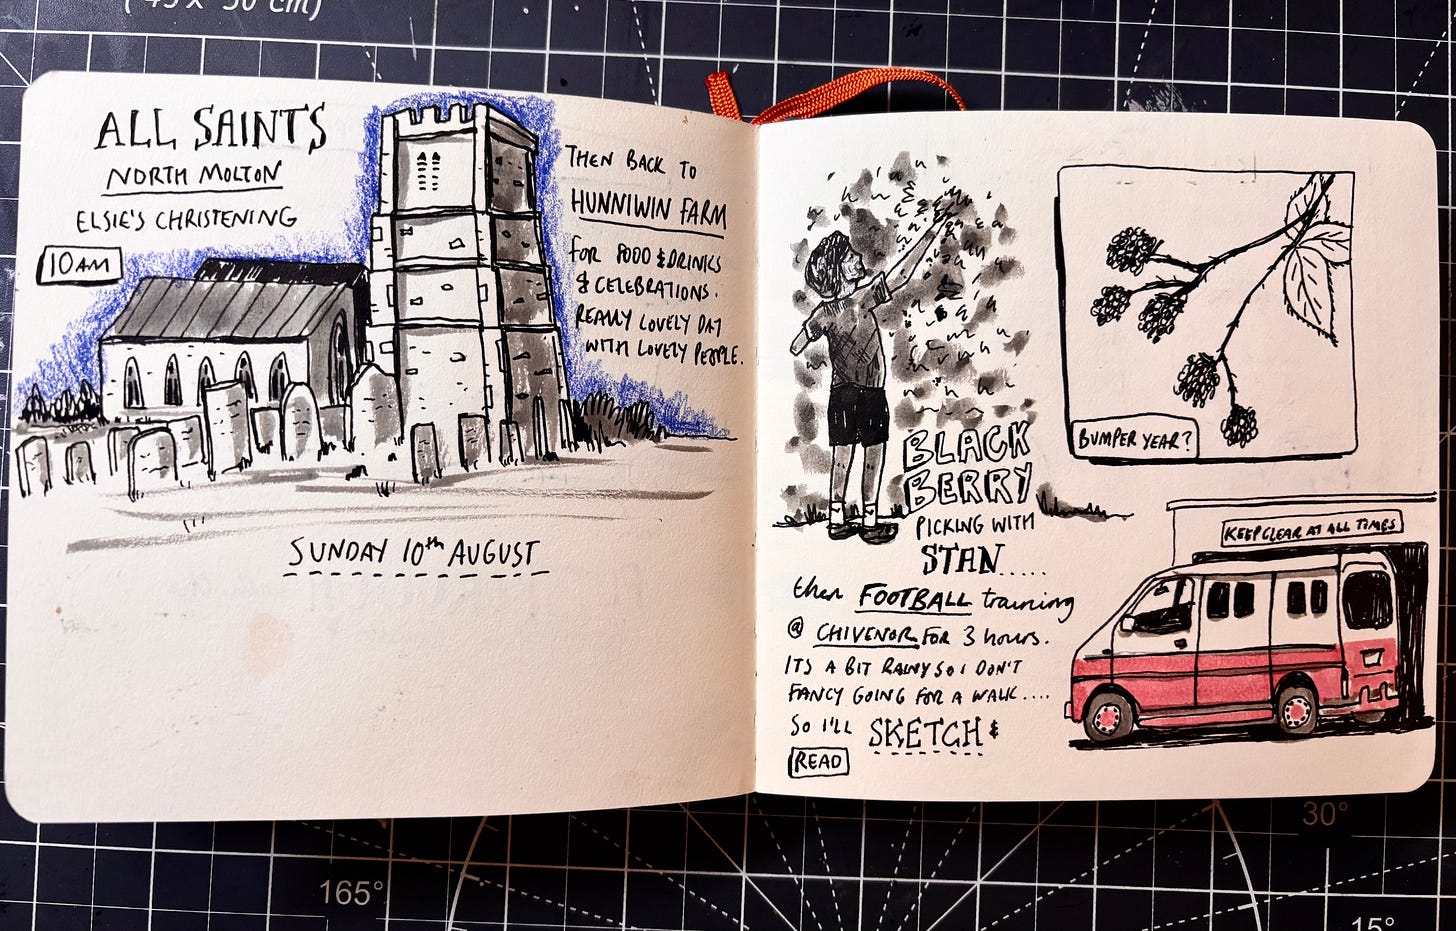 (45 x 30 cm)
ALL SAINTS
NORTH MOLTON
ELSIE'S CHRISTENING
10AM
THEN BACK TO
HUNNIWIN FARM
FOR FOOD & DRINKS
& CELEBRATIONS.
REALLY LOVELY DAY
WITH LOVELY PEOPLE.
SUNDAY 10th AUGUST
BLACK
BERRY
PICKING WITH
STAN.....
then FOOTBALL training
@ CHIVENOR FOR 3 hours.
ITS A BIT RAINY SO I DON'T
FANCY GOING FOR A WALK....
SO I'LL SKETCH &
READ
BUMPER YEAR?
KEEP CLEAR AT ALL TIMES
165°
30°
15°